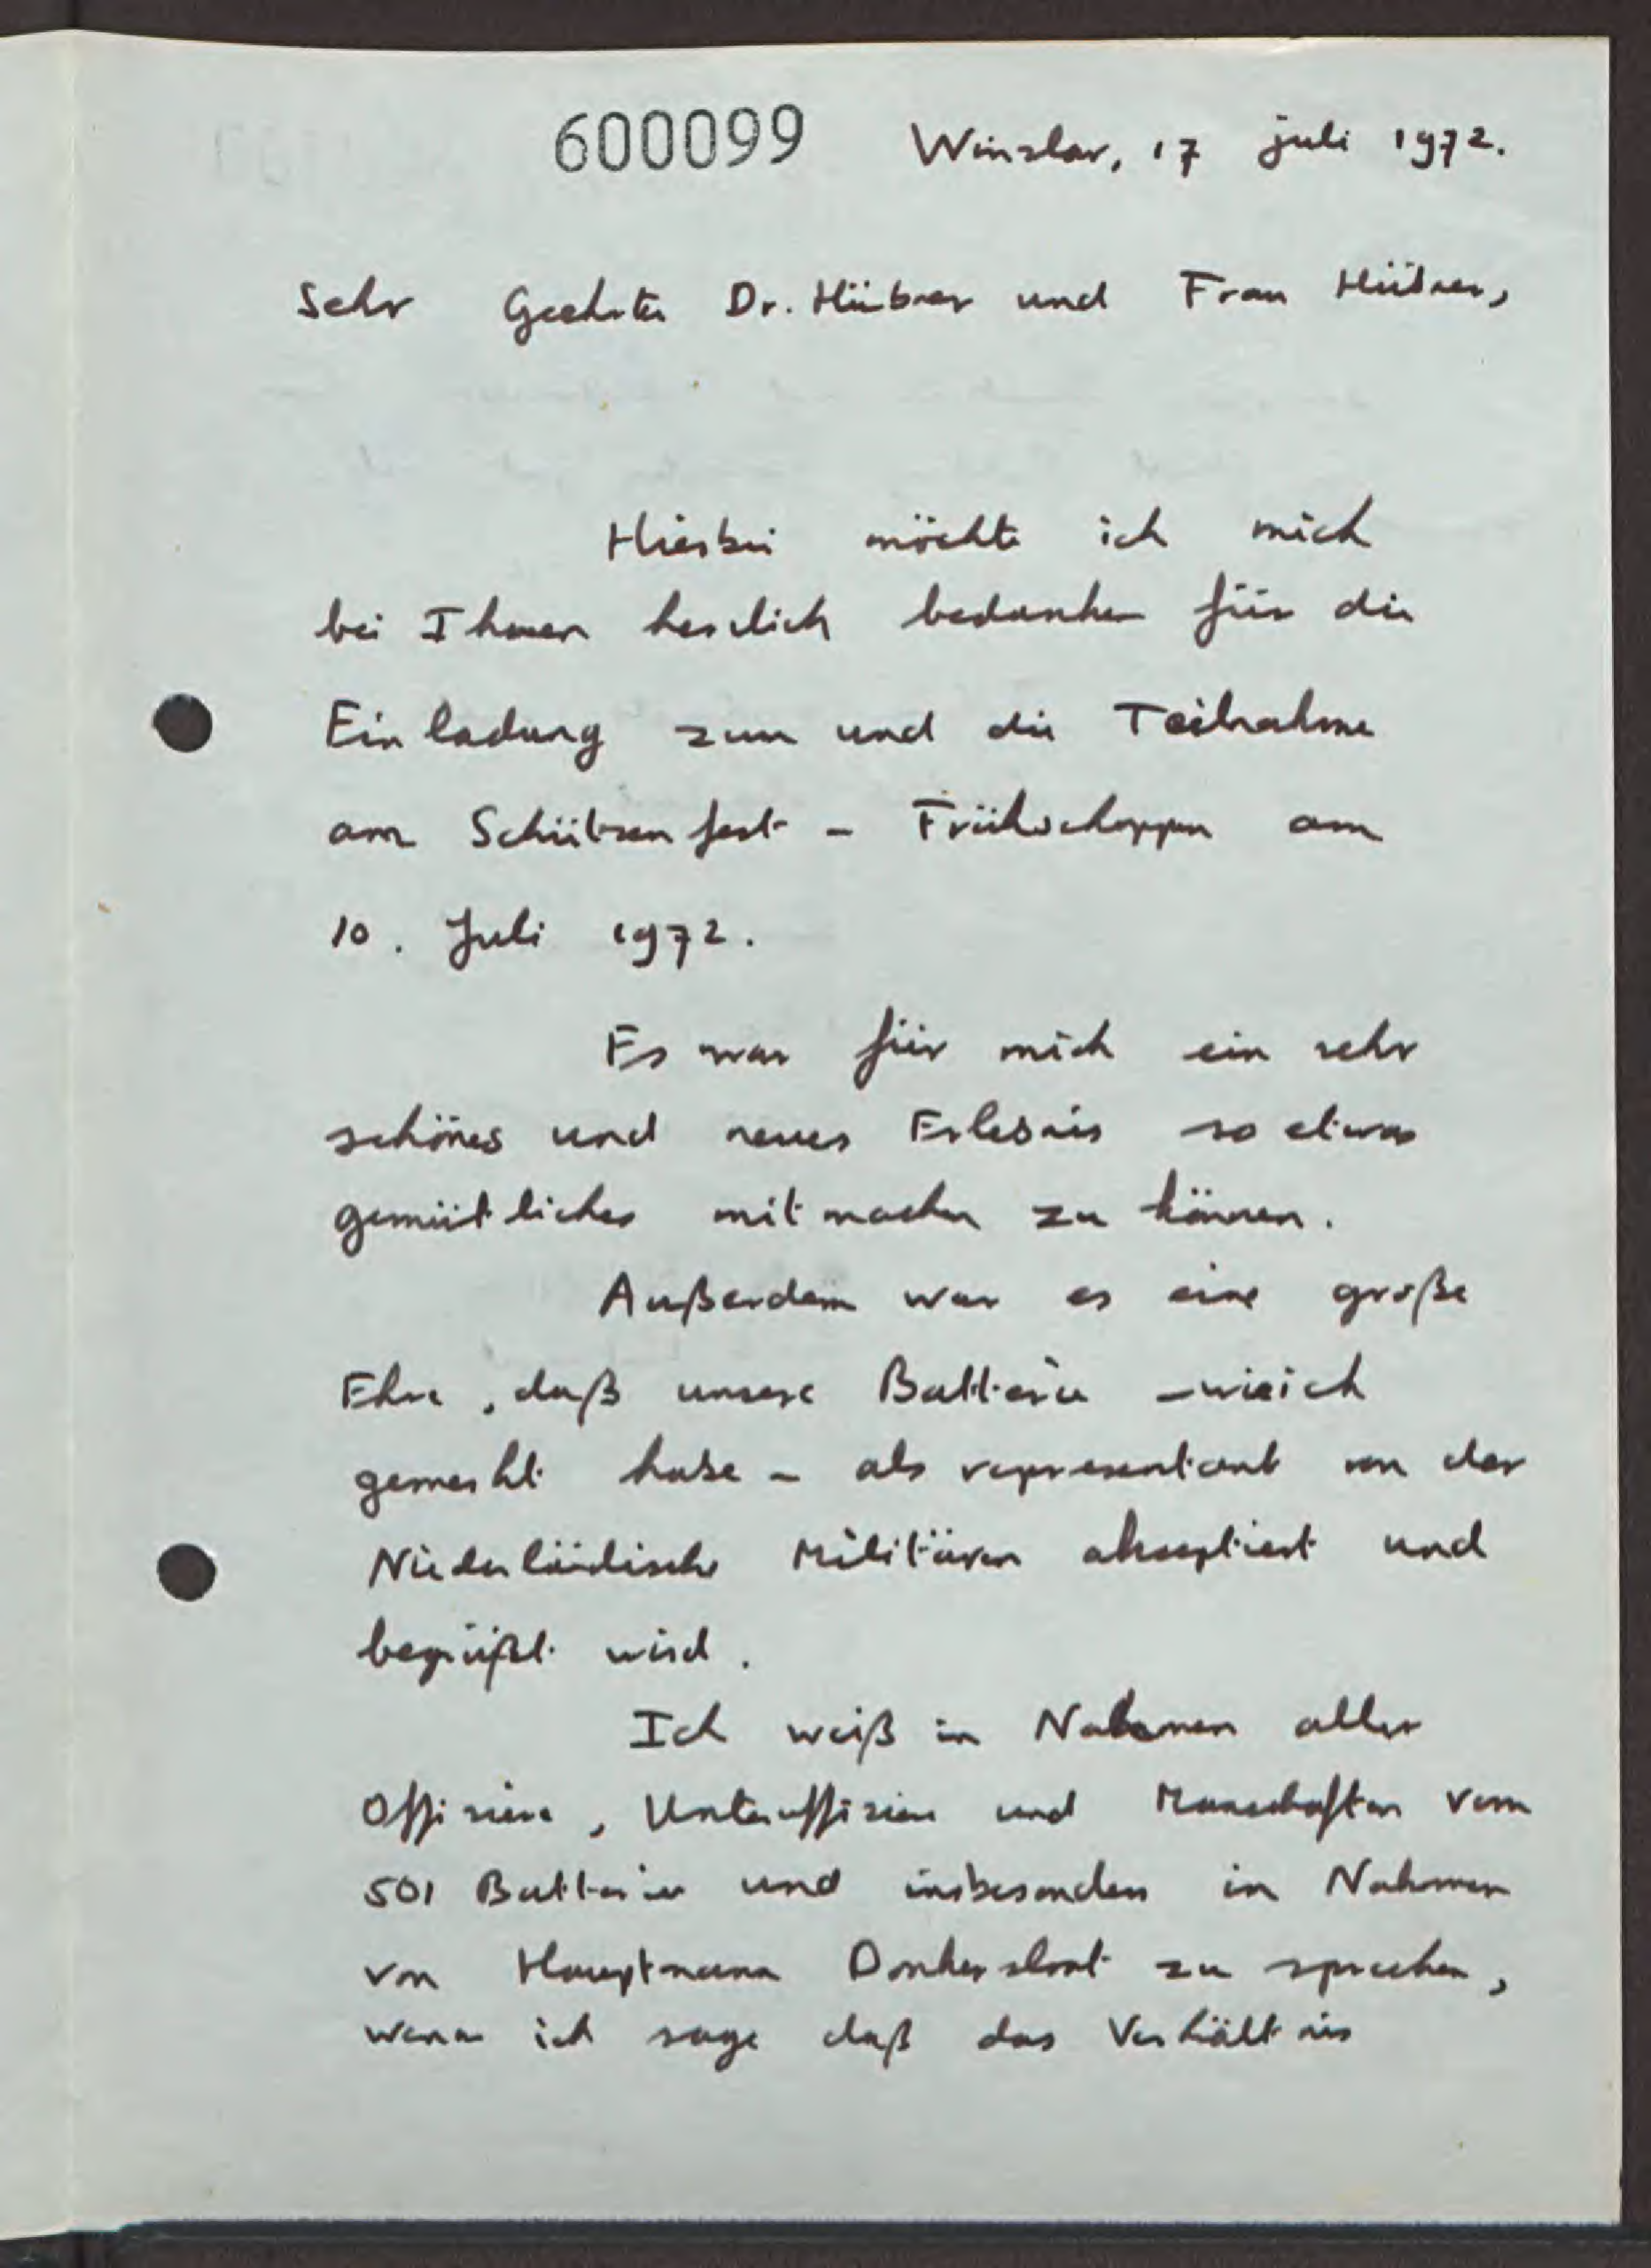 600099 Winzlar, 17 juli 1972.
Sehr Geehrte Dr. Hübner und Frau Hübner,
Hierbei möchte ich mich
bei Ihnen herzlich bedanken für die
Einladung zum und die Teilnahme
am Schützenfest - Frühschoppen am
10. Juli 1972.
Es war für mich ein sehr
schönes und neues Erlebnis so etwas
gemütliches mitmachen zu können.
Außerdem war es eine große
Ehre, daß unsere Batterie - wie ich
gemerkt habe - als representant von der
Niederländische Militären akzeptiert und
begrüßt wird.
Ich weiß in Nahmen aller
Offiziere, Unteroffiziere und Manschaften vom
501 Batterie und insbesondere in Nahmen
von Hauptmann Donkersloot zu sprechen,
wenn ich sage daß das Verhältnis